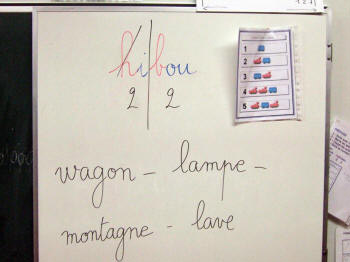 hibou
2 2
wagon - lampe -
montagne - lave
1
2
3
4
5